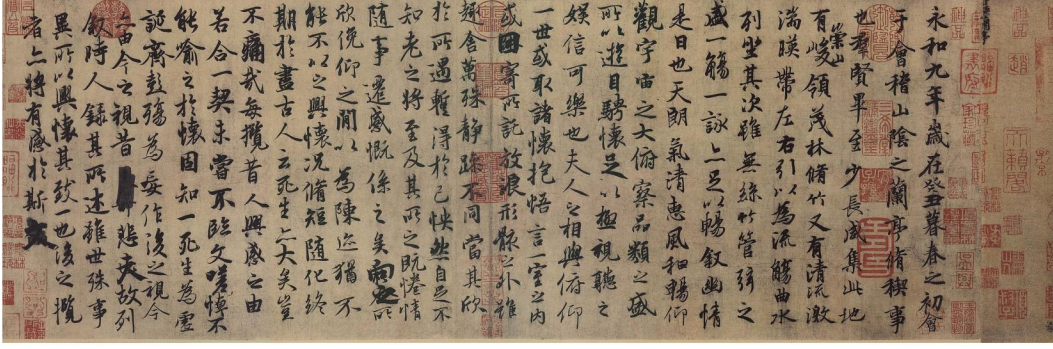 永和九年歲在癸丑暮春之初會
于會稽山陰之蘭亭脩稧事
也群賢畢至少長咸集此地
有崇山峻領茂林脩竹又有清流激
湍暎帶左右引以為流觴曲水
列坐其次雖無絲竹管弦之
盛一觴一詠亦足以暢叙幽情
是日也天朗氣清惠風和暢仰
觀宇宙之大俯察品類之盛
所以遊目騁懷足以極視聽之
娛信可樂也夫人之相與俯仰
一世或取諸懷抱悟言一室之內
或因寄所託放浪形骸之外雖
趣舍萬殊靜躁不同當其欣
於所遇暫得於己怏然自足不
知老之將至及其所之既惓情
隨事遷感慨係之矣向之所
欣俛仰之閒以為陳迹猶不
能不以之興懷況脩短隨化終
期於盡古人云死生亦大矣豈
不痛哉每攬昔人興感之由
若合一契未嘗不臨文嗟悼不
能喻之於懷固知一死生為虛
誕齊彭殤為妄作後之視今
亦由今之視昔悲夫故列
叙時人錄其所述雖世殊事
異所以興懷其致一也後之攬
者亦將有感於斯文